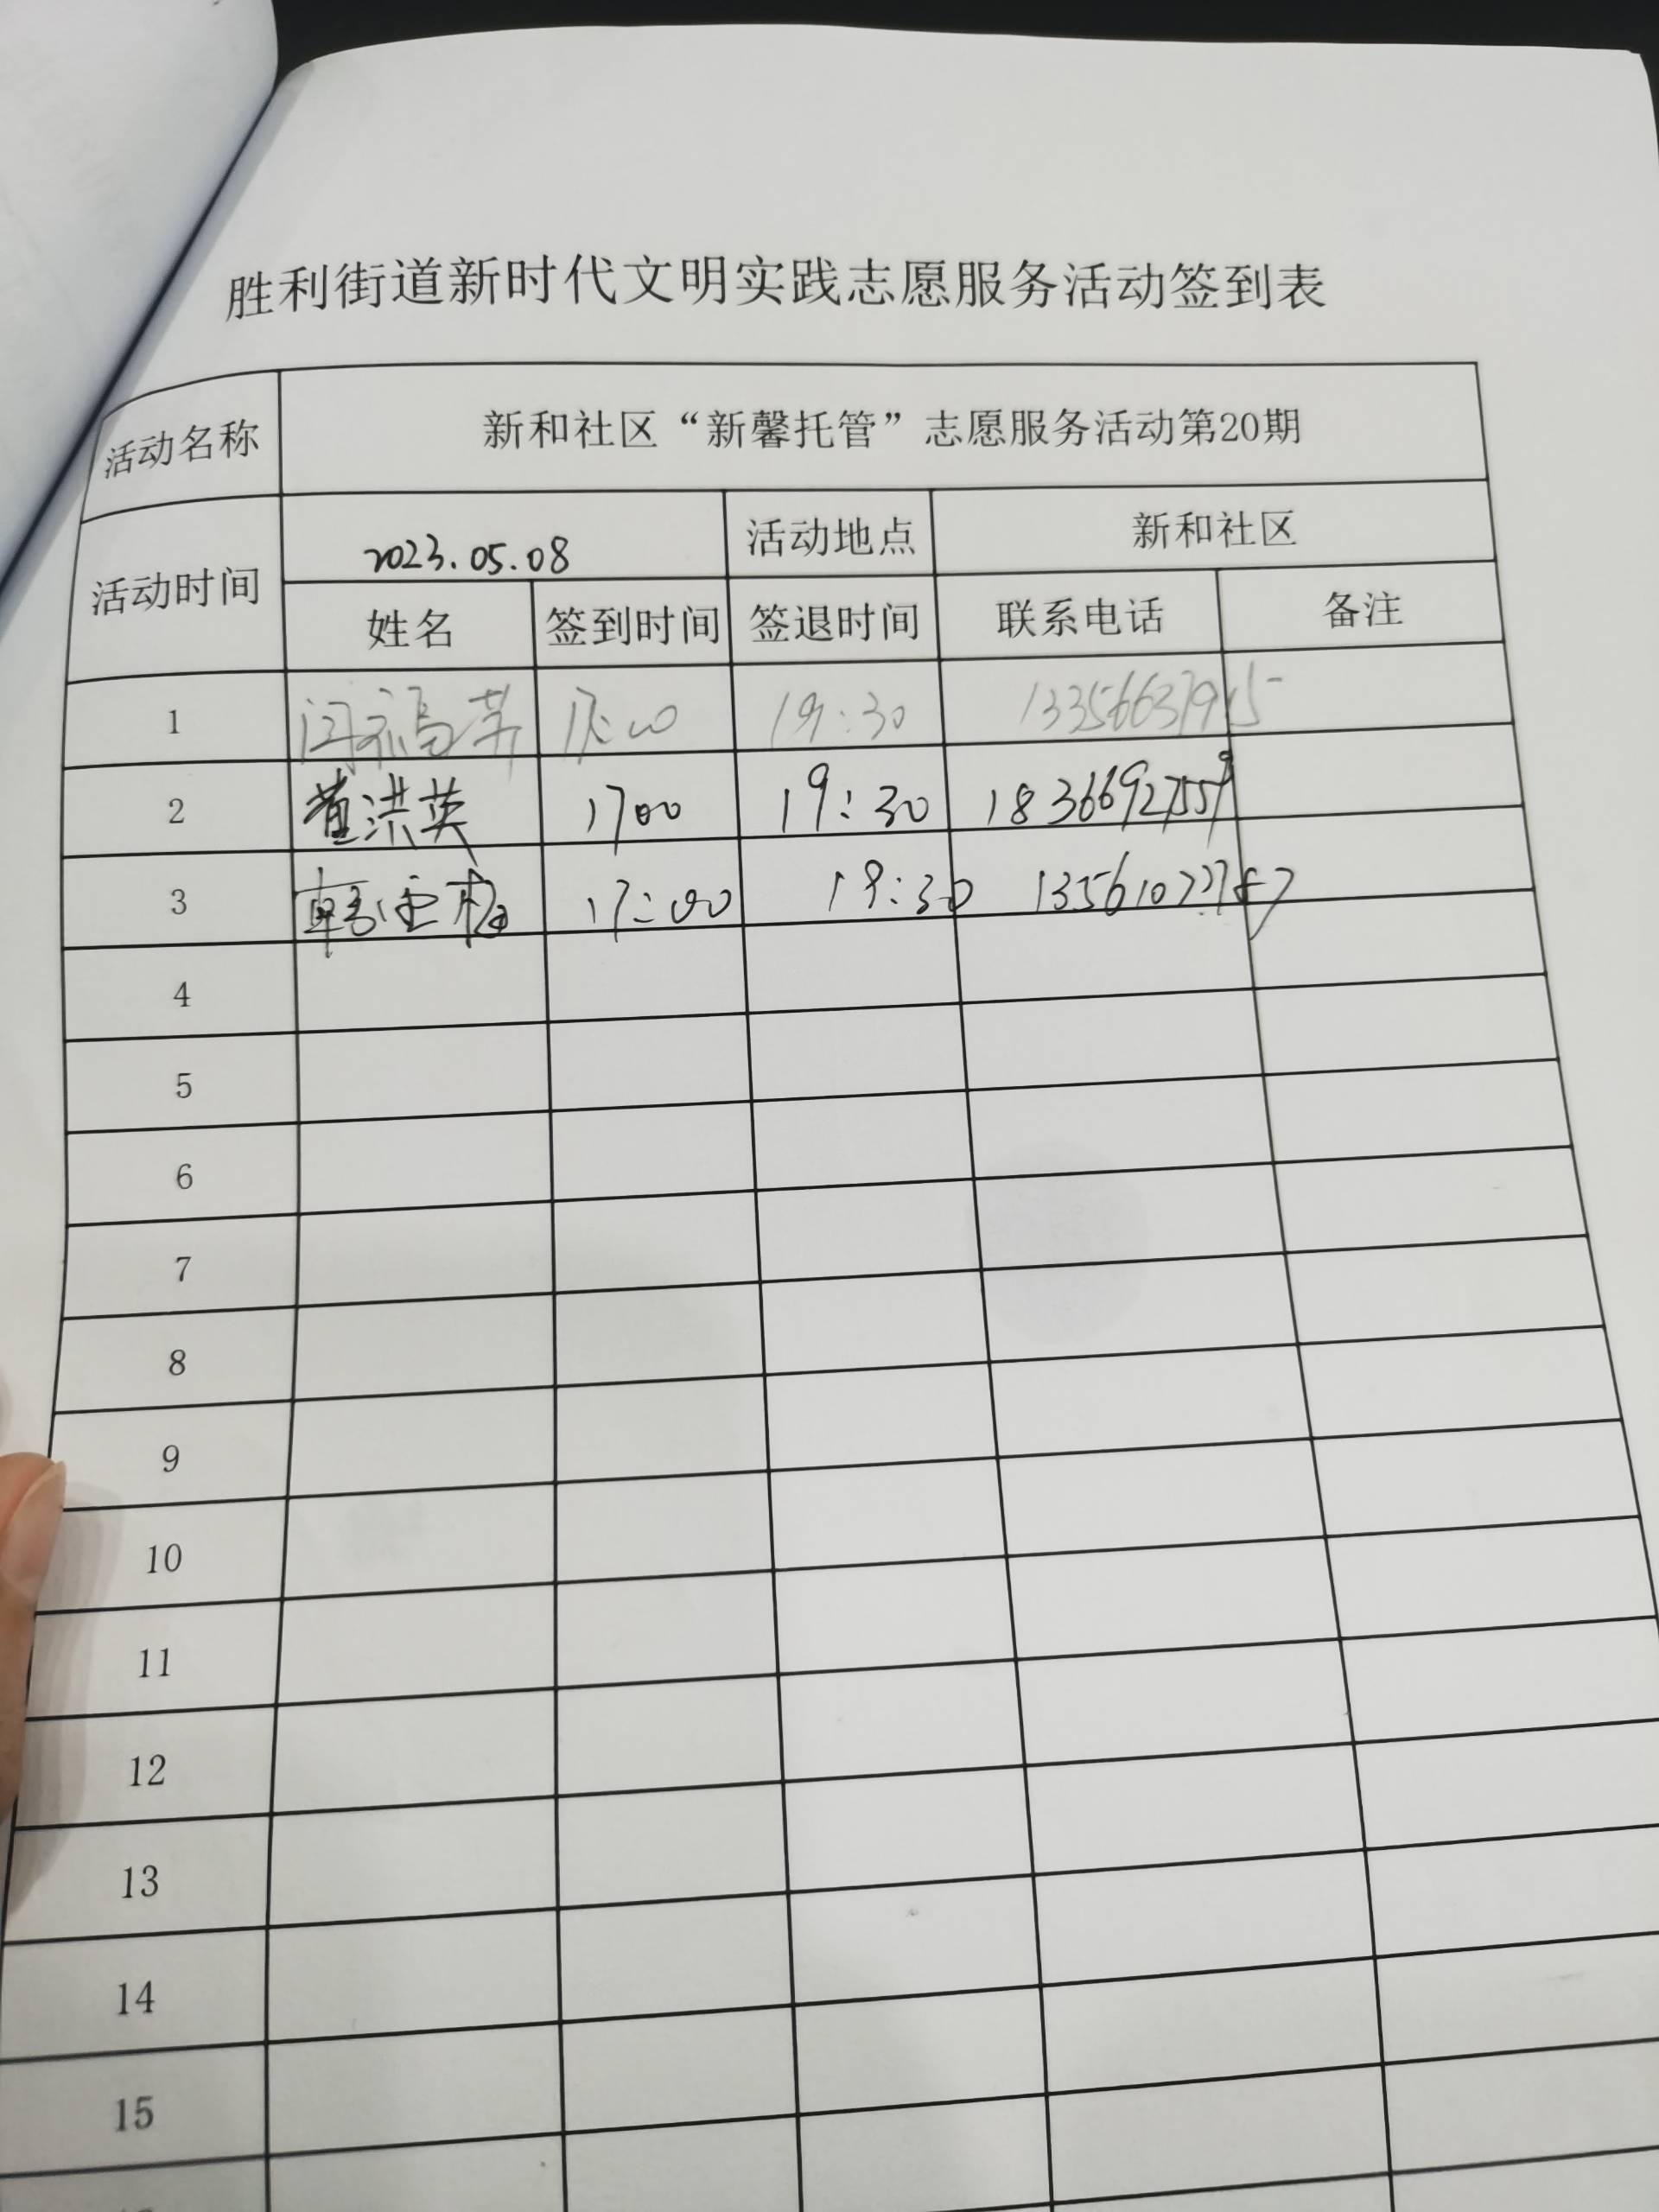 胜利街道新时代文明实践志愿服务活动签到表
活动名称 新和社区“新馨托管”志愿服务活动第20期
活动时间 2023.05.08 活动地点 新和社区
姓名 签到时间 签退时间 联系电话 备注
1 17:00 19:30
2 董洪英 1700 19:30 18366927559
3 17:00 19:30
4
5
6
7
8
9
10
11
12
13
14
15